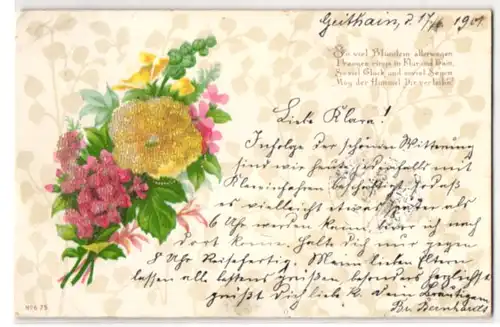 Geithain, d. 17/6 1901
So viel Blümlein allerwegen
Prangen rings in Flur und Hain,
So viel Glück und soviel Segen
Mag der Himmel Dir verleihn!
Liebe Klara!
Infolge der schönen Witterung
sind wir heute jedenfalls mit
Kleeeinfahren beschäftigt, sodaß
es vielleicht etwas später als
6 Uhr werden kann, bevor ich nach
dort komme. Halte dich nur gegen
8 Uhr Reisefertig. Meine lieben Eltern
lassen alle bestens grüßen, besonders herzlichst
grüßt Dich liebe K. Dein Bräutigam
Br. Bernhardt
No 675